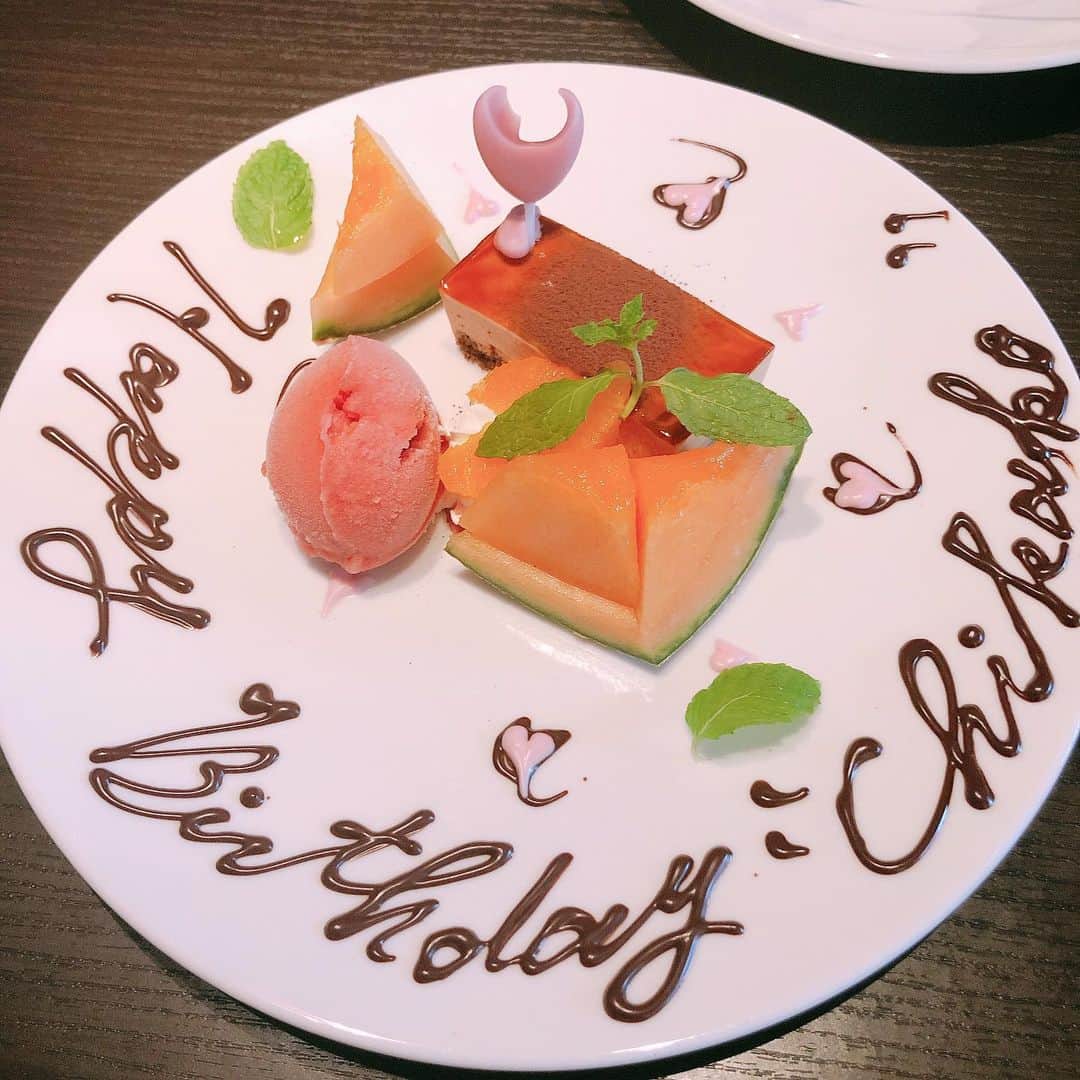 Happy
Birthday "Chikaho"